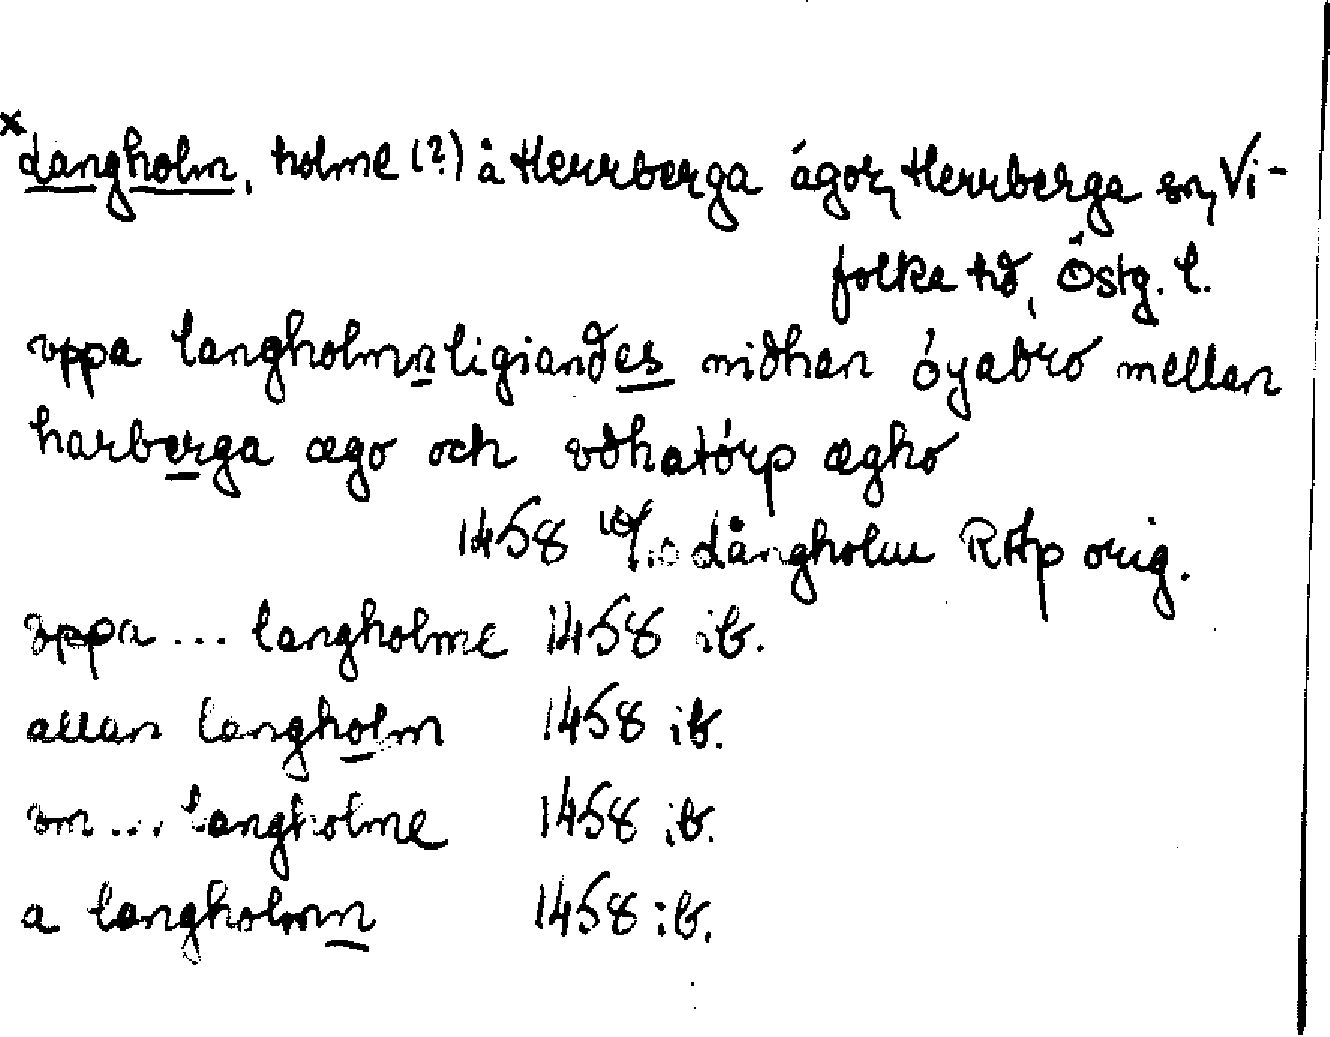 × Langholm, holme (?) å Herrberga ägor, Herrberga sn, Vi-
folka hd, Östg. l.
vppa langholmn ligiandes nidhan öyabro mellan
harberga ægo och vdhatörp ægho
1458 /10 Långholm RAp orig.
vppa ... langholme 1458 ib.
allan langholm 1458 ib.
vm ... langholme 1458 ib.
a langholmm 1458 ib.